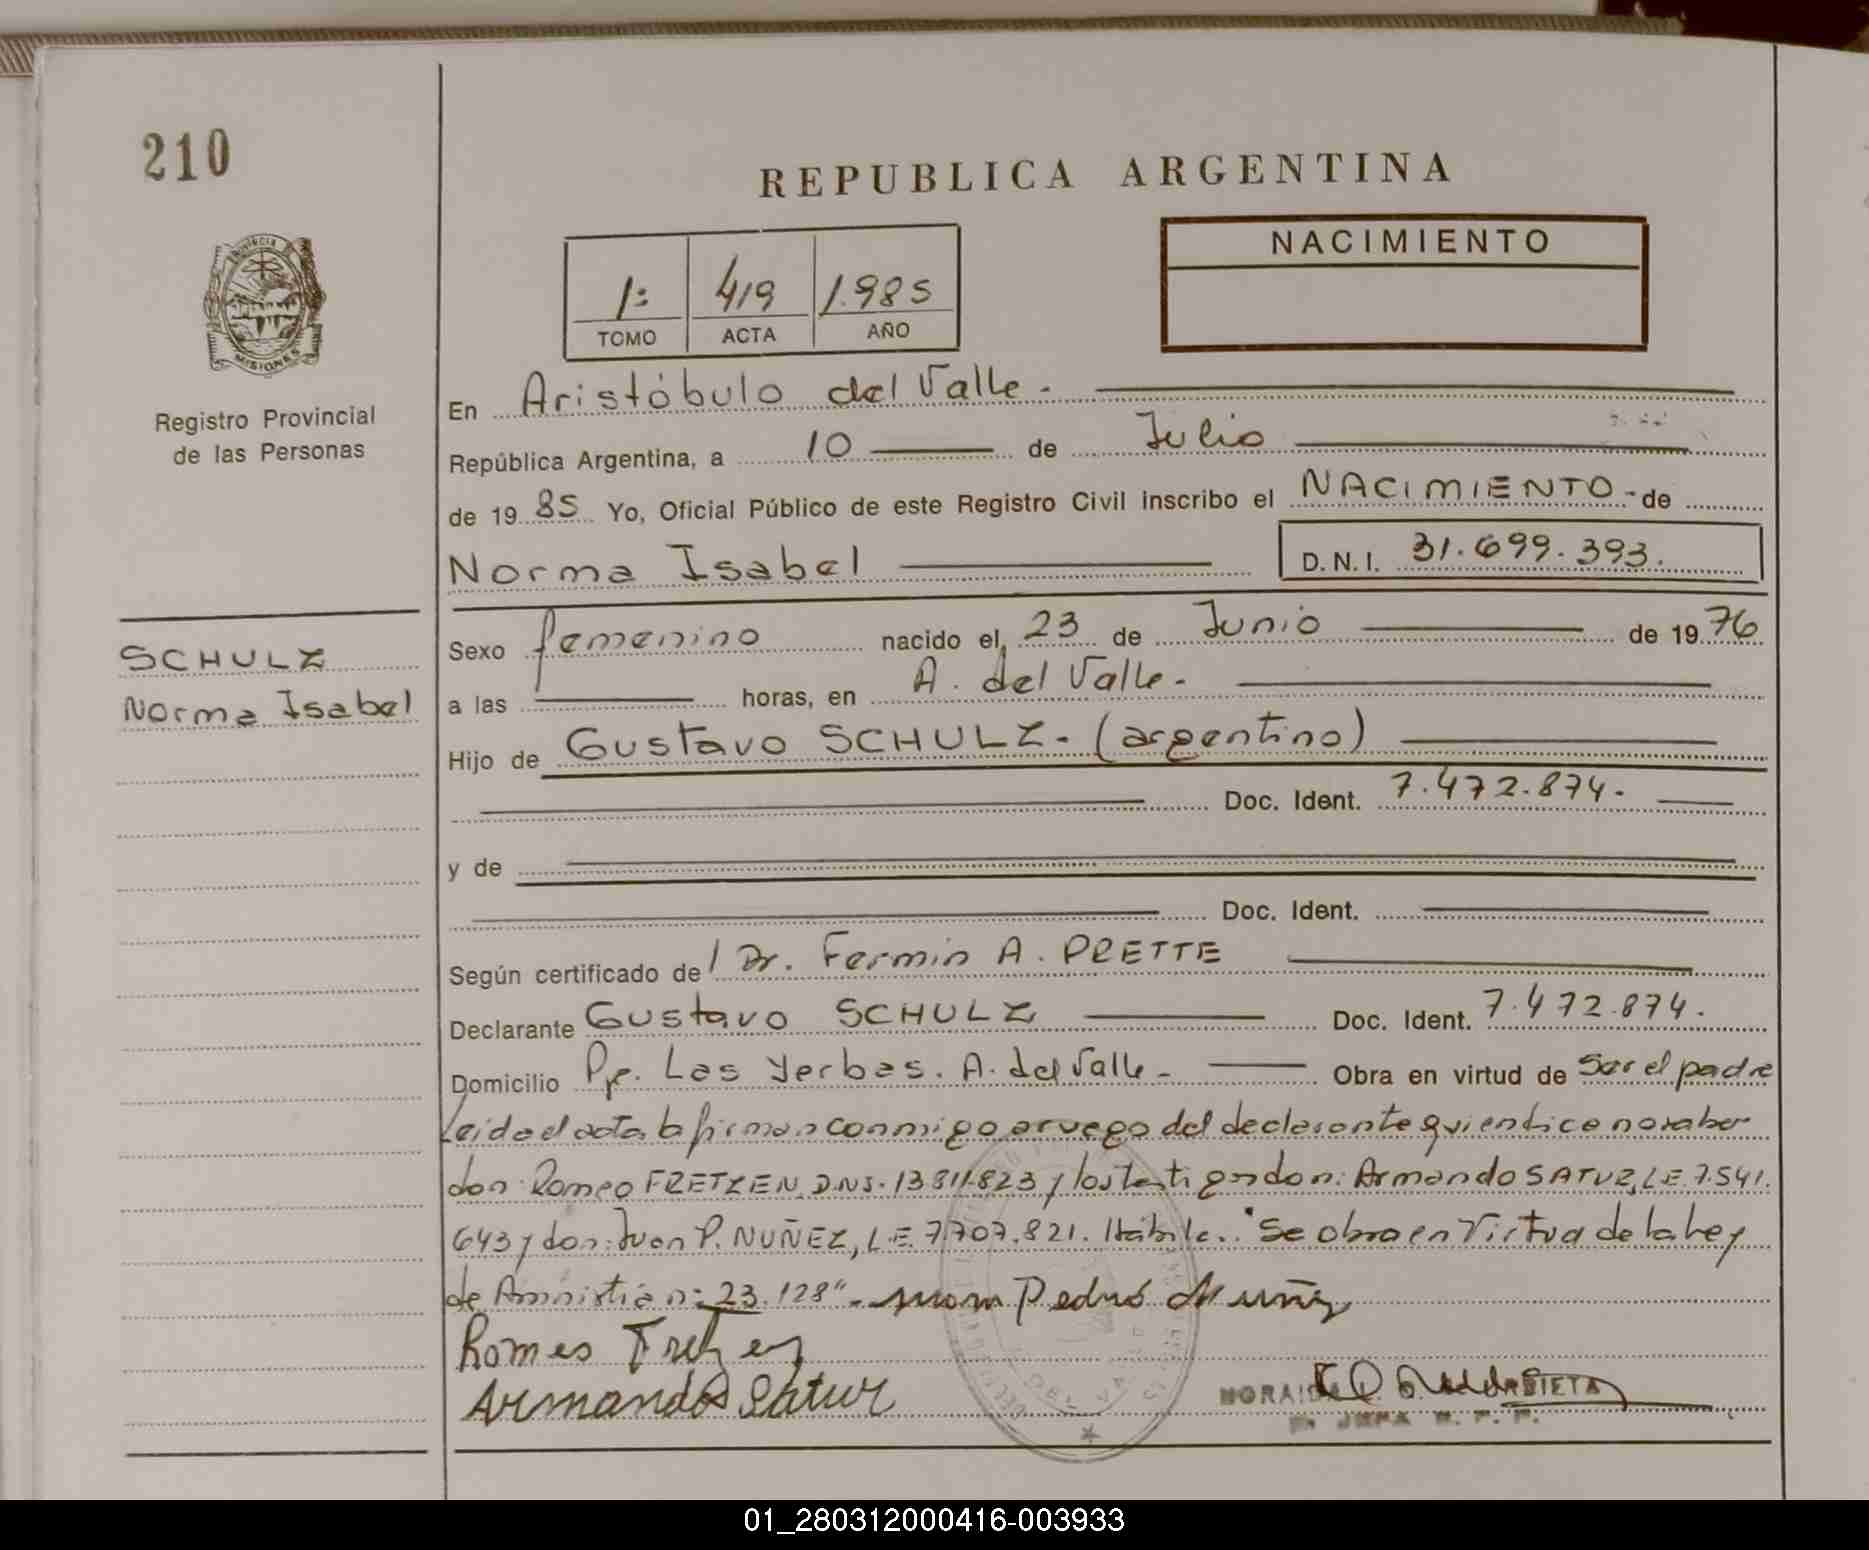 210
REPUBLICA ARGENTINA
NACIMIENTO
1º 419 1.985
TOMO ACTA AÑO
PROVINCIA DE
MISIONES
Registro Provincial
de las Personas
En Aristóbulo del Valle.
República Argentina, a 10 de Julio
de 1985 Yo, Oficial Público de este Registro Civil inscribo el NACIMIENTO - de
Norma Isabel D.N.I. 31.699.393.
SCHULZ
Norma Isabel
Sexo femenino nacido el, 23 de Junio de 1976
a las horas, en A. del Valle.
Hijo de Gustavo SCHULZ. (argentino)
Doc. Ident. 7.472.874.
y de
Doc. Ident.
Según certificado de Dr. Fermin A. PRETTE
Declarante Gustavo SCHULZ Doc. Ident. 7.472.874.
Domicilio Pje. Las Yerbas. A. del Valle. Obra en virtud de Ser el padre
Leida el acta la firman conmigo a ruego del declarante quien dice no saber
don: Romeo FRETZEN D.N.I. 13.811.823 y los testigos don: Armando SATUR, L.E. 7.541.
643 y don: Juan P. NUÑEZ, L.E. 7.707.821. Hábile.. "Se obra en Virtud de la Ley
de Amnistia nº 23.128".- Juan Pedro Nuñez
Romeo Fretzen
Armando Satur